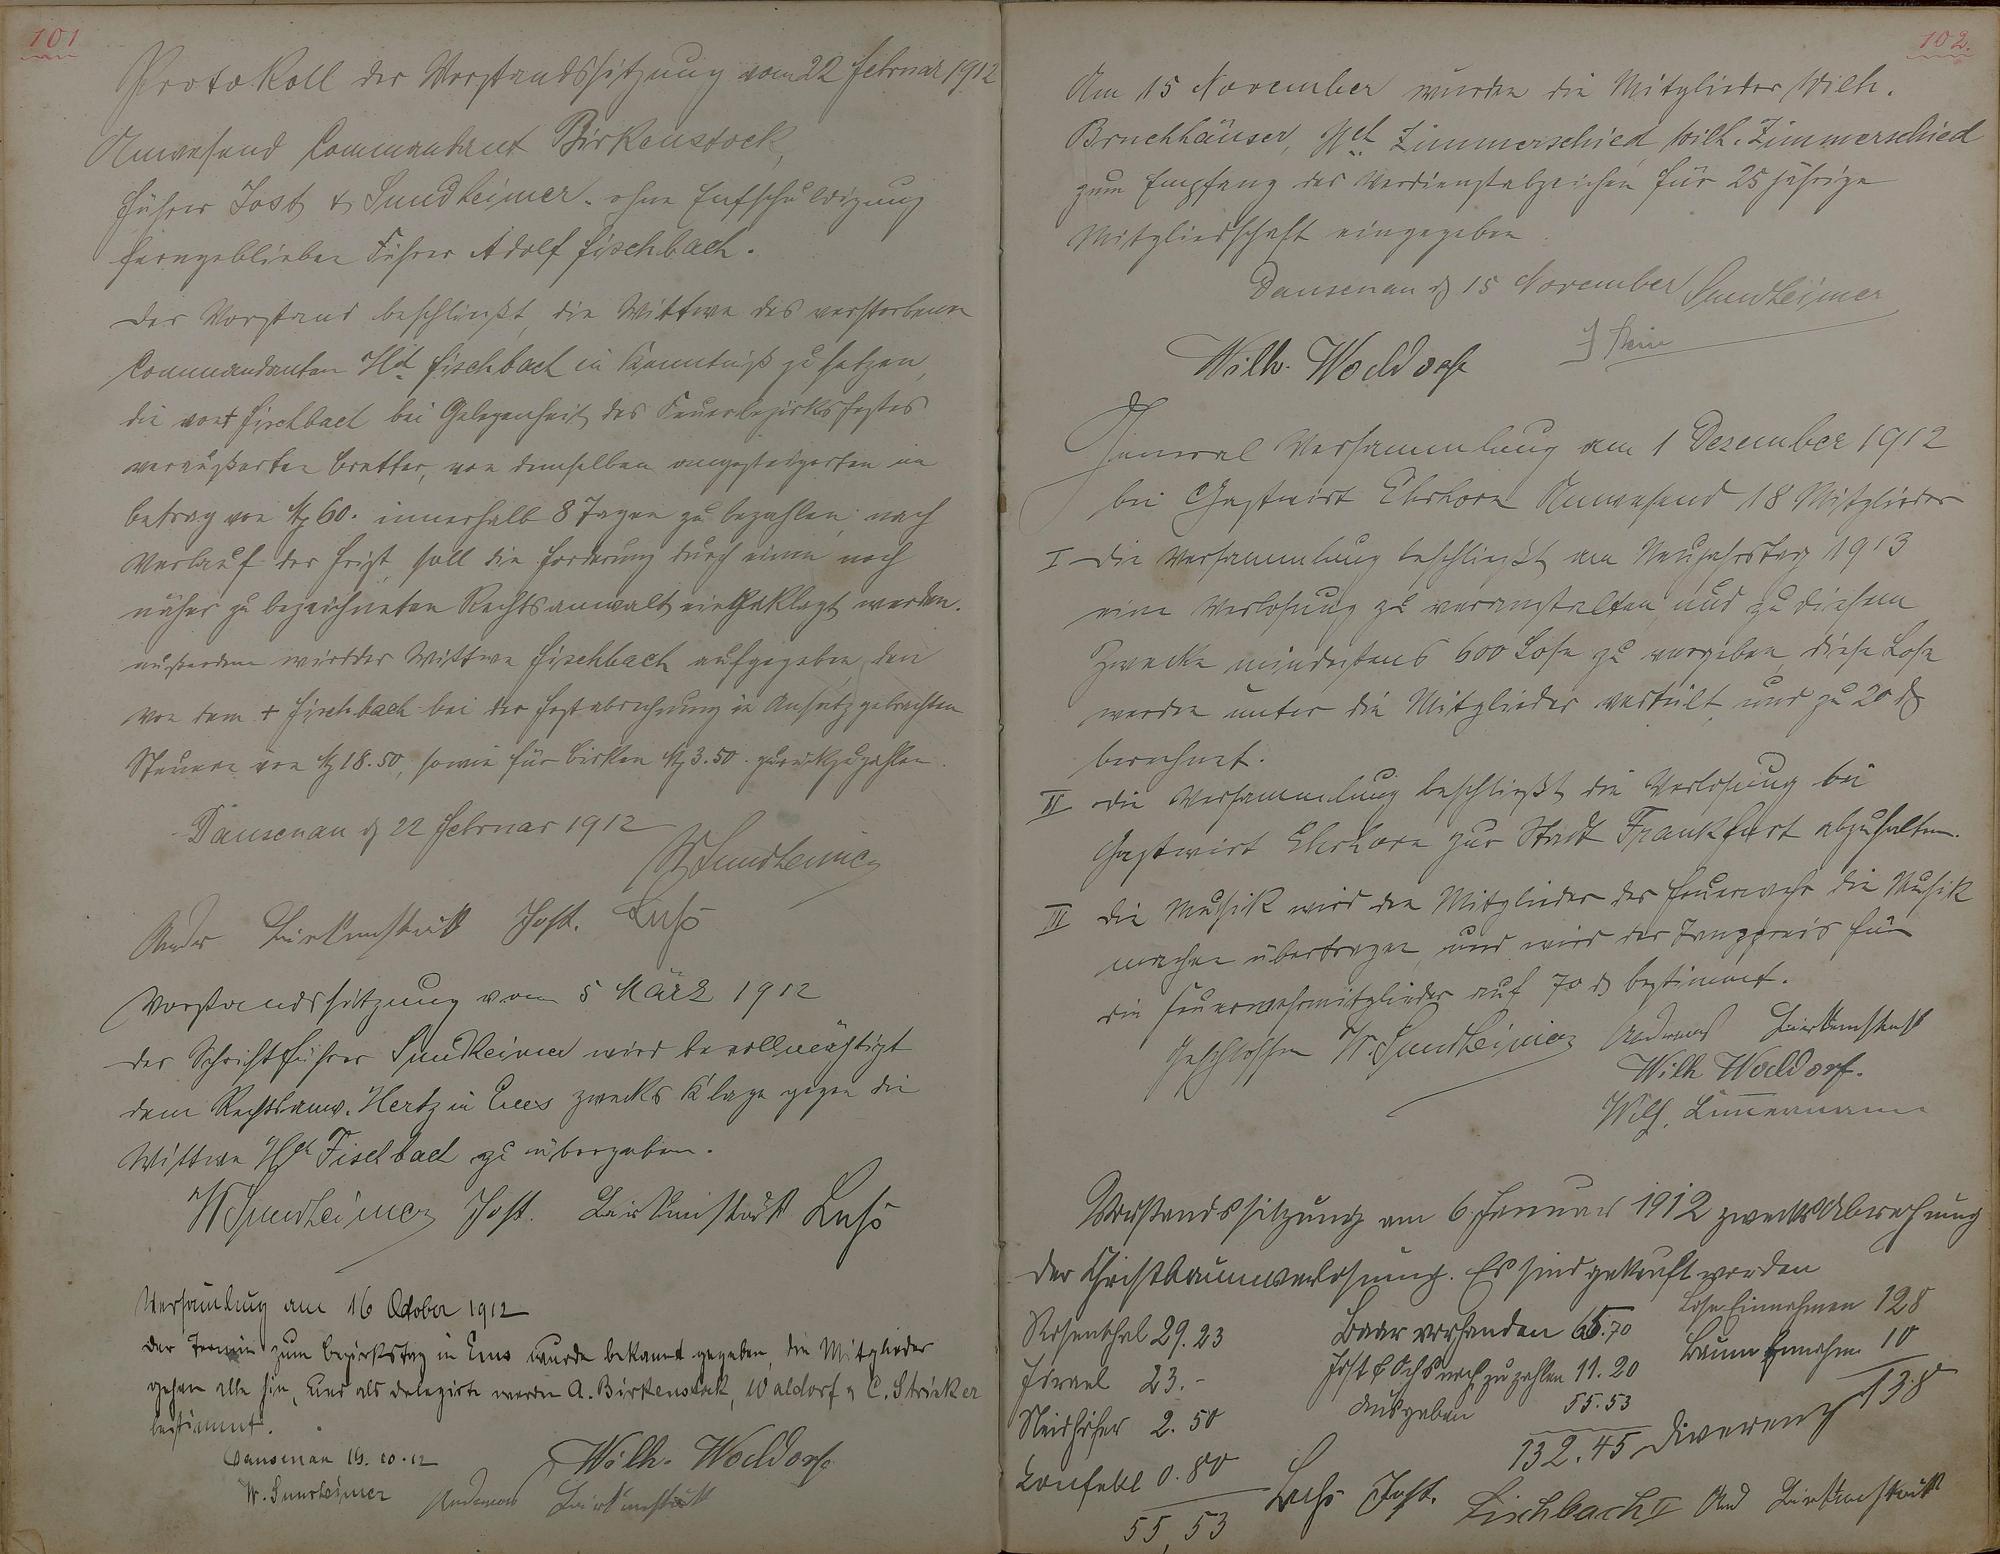 101
Protokoll der Vorstandssitzung vom 22 Februar 1912
Anwesend Commandant Birkenstock,
Führer Jost & Sundheimer. ohne Entschuldigung
ferngeblieben Führer Adolf Fischbach.
Der Vorstand beschließt, die Wittwe des verstorbenen
Commandanten Hch Fischbach in Kenntniß zu setzen,
die von † Fischbach bei Gelegenheit des Feuerbezirksfestes
veräußerten Bretter, von demselben angesteigerten im
betrag von M 60. innerhalb 8 Tagen zu bezahlen, nach
Verlauf der Frist, soll die Forderung durch einen noch
näher zu bezeichneten Rechtsanwalt eingeklagt werden.
außerdem wird der Wittwe Fischbach aufgegeben, den
von dem † Fischbach bei der Festabrechnung in Ansatz gebrachten
Steuern von M 18.50, sowie für Birken M 3.50. zurückzuzahlen.
Dausenau d 22 Februar 1912
W Sundheimer
Andr Birkenstock Jost. Luhs
Vorstandssitzung vom 5 März 1912
Der Schriftführer Sundheimer wird bevollmächtigt
dem Rechtsanw. Hertz in Ems zwecks Klage gegen die
Wittwe Hch Fischbach zu übergeben.
W Sundheimer Jost. Birkenstock Luhs
Versamlung am 16 October 1912
Der Termin zum Bezirkstag in Ems wurde bekannt gegeben, die Mitglieder
gehen alle hin, und als delegirte werden A. Birkenstock, Waldorf & C. Stricker
bestimmt.
Dausenau 16.10.12
W. Sundheimer Wilh. Woldorf
Andreas Birkenstock
102.
Am 15 November wurden die Mitglieder Wilh.
Bruchhäuser, Hch Zimmerschied, Wilh. Zimmerschied
zum Empfang des Verdienstabzeichen für 25 jährige
Mitgliedschaft eingegeben.
Dausenau d 15 November Sundheimer
Wilh. Woldorf
General Versammlung am 1 Dezember 1912
bei Gastwirt Ehrhorn Anwesend 18 Mitglieder
I Die Versammlung beschließt am Neujahrstag 1913
eine Verlosung zu veranstalten, und zu diesem
Zwecke mindestens 600 Lose zu vergeben, diese Lose
werden unter die Mitglieder verteilt, und zu 20 d
berechnet.
II Die Versammlung beschließt die Verlosung bei
Gastwirt Ehrhorn zur Stadt Frankfurt abzuhalten.
III Die Musik wird den Mitglieder der Feuerwehr die Musik
machen übertragen, und wird der Tanzpreis für
die Feuerwehrmitglieder auf 70 d bestimmt.
Geschlossen W. Sundheimer Andreas Birkenstock
Wilh Woldorf.
Wilh. Zimmermann
Vorstandssitzung am 6. Januar 1912 zwecks Abrechnung
der Christbaumverlosung. Es sind gekauft worden
Rosenthal 29.23 Baar vorhanden 65.70 Lose Einnahmen 128
Israel 23.- Jost & Ochs noch zu zahlen 11.20 Baum Einnahm 10
Neidhöfer 2.50 Ausgaben 55.53 138
Konfekt 0.80 132.45 Diverenz
55,53 Luhs Jost. Fischbach II And Birkenstock